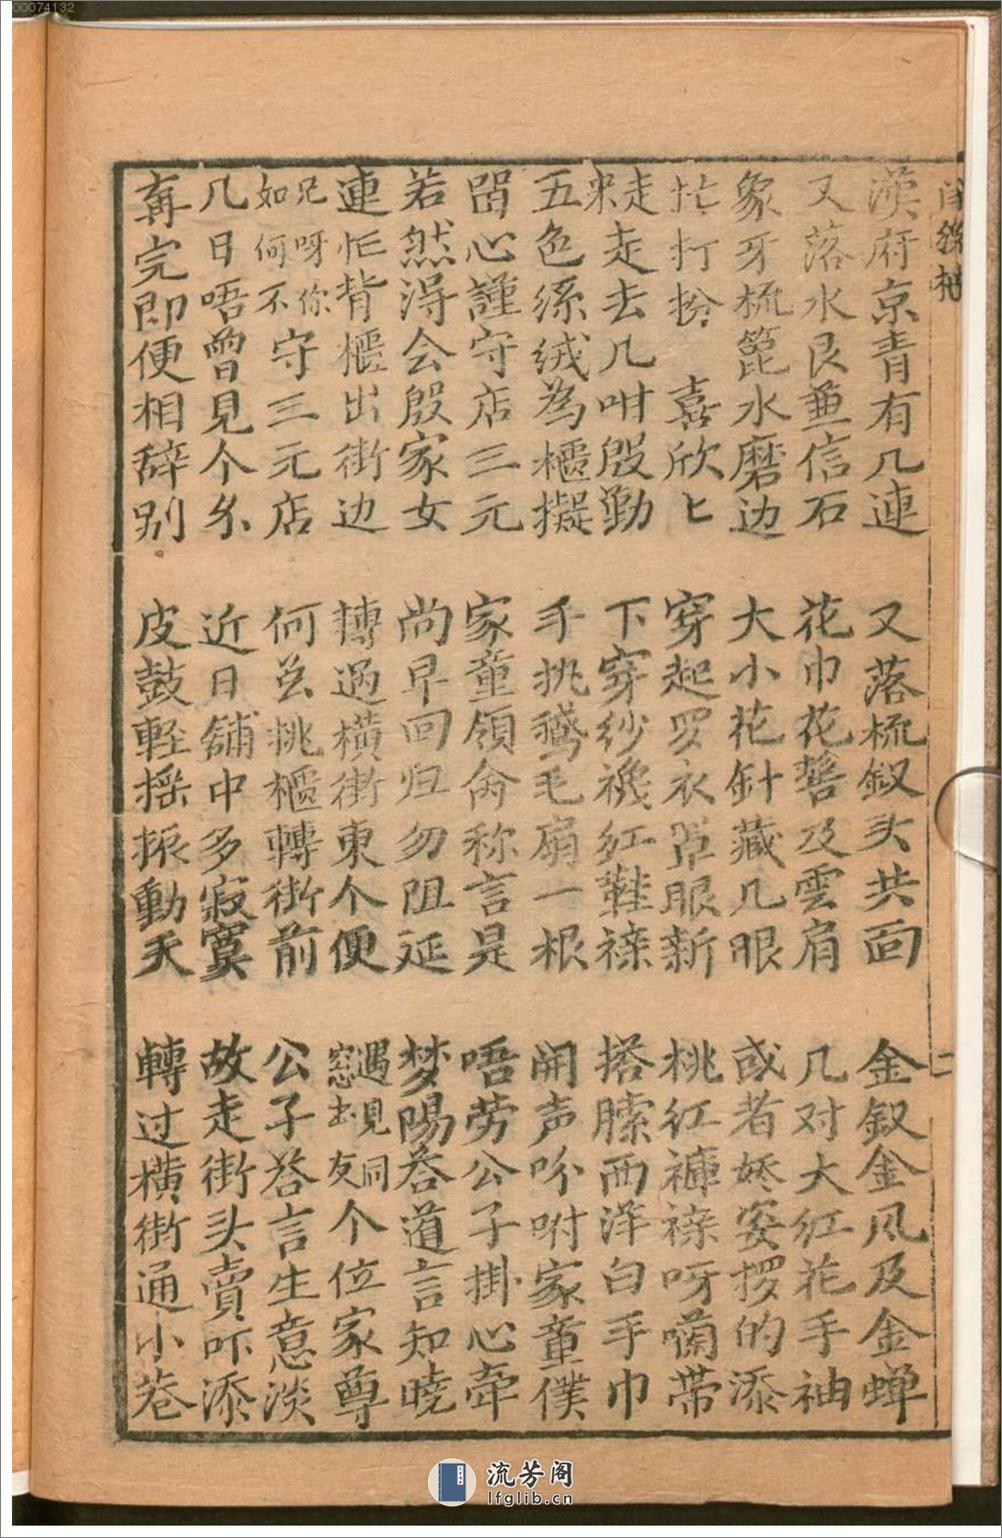 00074132
漢府京青有几連　又落梳釵头共面　金釵金凤及金蟬
又落水艮兼信石　花巾花髻及雲肩　几对大紅花手袖
象牙梳篦水磨边　大小花針藏几眼　或者娇娑攞的添
忙打扮　喜欣匕　穿起罗衣罩眼新　桃紅褲𧜵呀囒帶
走来走去几咁殷勤　下穿紗襪红鞋𧜵　搭膝西洋白手巾
五色綵绒為櫃擬　手挑鵞毛扇一根　開声吩咐家童僕
畱心謹守店三元　家童領命称言是　唔劳公子掛心牵
若然淂会殷家女　尚早回归勿阻延　梦陽答道言知曉
連忙背櫃出街边　摶過橫街東个便　遇見同窓友个位家尊
兄呀你如何不守三元店　何苦挑櫃轉街前　公子答言生意淡
几日唔曾見个分　近日舖中多寂寞　故走街头賣吓添
再完即便相辞别　皮鼓軽搖振動天　轉过橫街通小巷
二
流芳阁
lfglib.cn